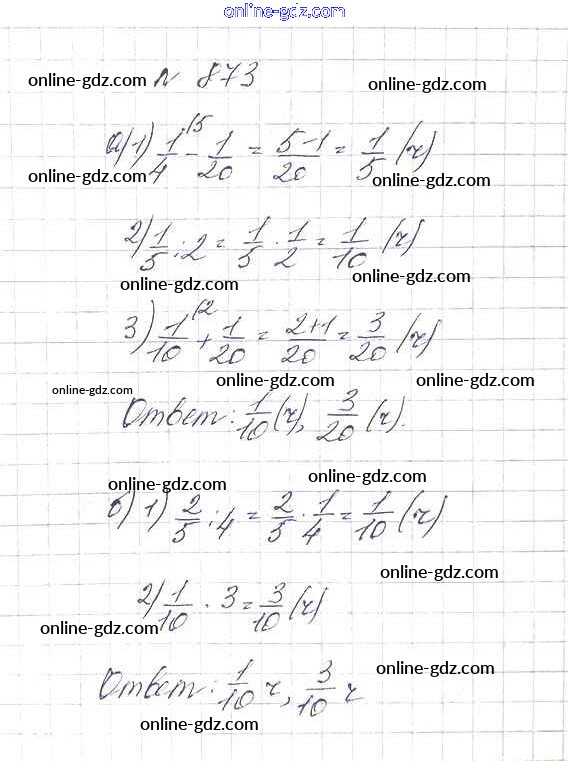 online-gdz.com
online-gdz.com № 873 online-gdz.com
а) 1) 1/4 \5 - 1/20 = 5-1/20 = 1/5 (ч)
online-gdz.com online-gdz.com
2) 1/5 : 2 = 1/5 · 1/2 = 1/10 (ч)
online-gdz.com online-gdz.com
3) 1/10 \2 + 1/20 = 2+1/20 = 3/20 (ч)
online-gdz.com online-gdz.com online-gdz.com
Ответ: 1/10 (ч), 3/20 (ч).
online-gdz.com online-gdz.com
б) 1) 2/5 : 4 = 2/5 · 1/4 = 1/10 (ч)
online-gdz.com
2) 1/10 · 3 = 3/10 (ч)
online-gdz.com
Ответ: 1/10 ч, 3/10 ч
online-gdz.com
online-gdz.com